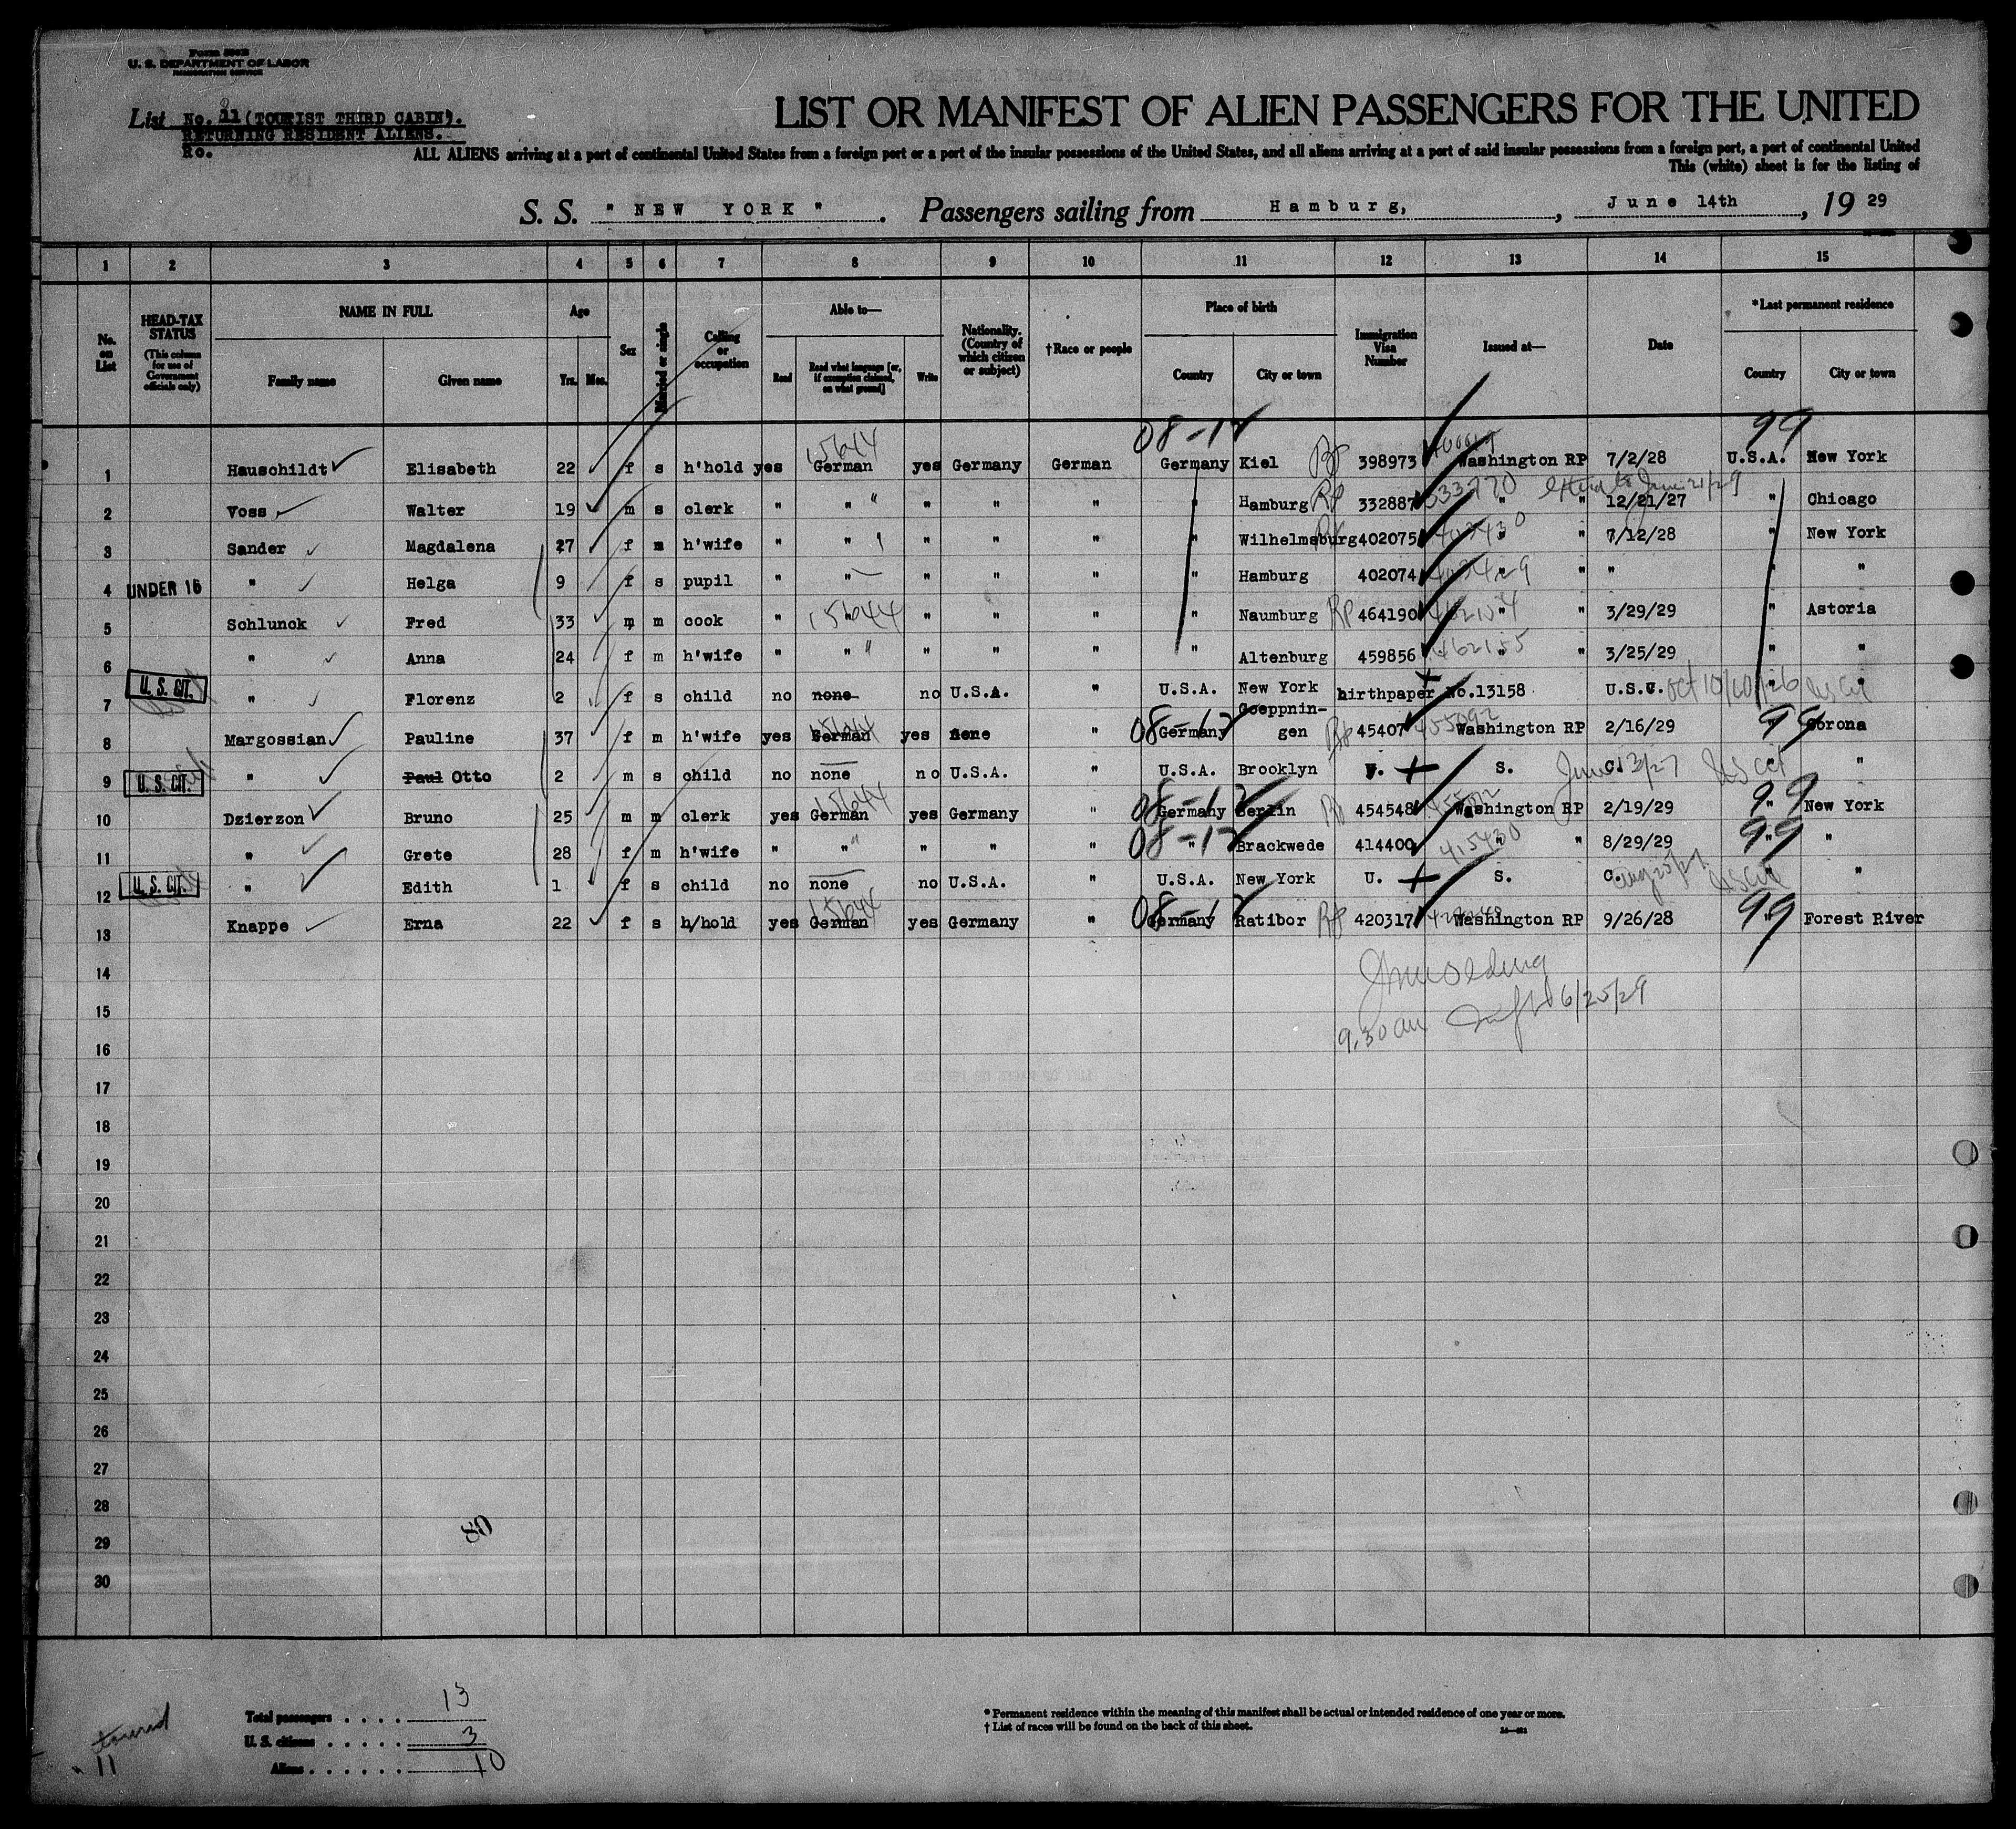 Form 500B
U. S. DEPARTMENT OF LABOR
IMMIGRATION SERVICE
List No. 11 (TOURIST THIRD CABIN).
RETURNING RESIDENT ALIENS.
Ro.
LIST OR MANIFEST OF ALIEN PASSENGERS FOR THE UNITED
ALL ALIENS arriving at a port of continental United States from a foreign port or a port of the insular possessions of the United States, and all aliens arriving at a port of said insular possessions from a foreign port, a port of continental United
This (white) sheet is for the listing of
S. S. " NEW YORK " . Passengers sailing from Hamburg, , June 14th , 19 29
1 2 3 4 5 6 7 8 9 10 11 12 13 14 15
No. on List
HEAD-TAX STATUS (This column for use of Government officials only)
NAME IN FULL Family name Given name
Age Yrs. Mos.
Sex
Married or single
Calling or occupation
Able to— Read Read what language [or, if exemption claimed, on what ground] Write
Nationality. (Country of which citizen or subject)
†Race or people
Place of birth Country City or town
Immigration Visa Number
Issued at—
Date
*Last permanent residence Country City or town
08-1 99
15644
1 Hauschildt Elisabeth 22 f s h'hold yes German yes Germany German Germany Kiel RP 398973 Washington RP 7/2/28 U.S.A. New York
2 Voss Walter 19 m s clerk " " " " " " Hamburg RP 332887 333770 " " 12/21/27 " Chicago
3 Sander Magdalena 27 f m h'wife " " " " " " Wilhelmsburg 402075 403430 " " 7/12/28 " New York
4 UNDER 16 " Helga 9 f s pupil " " " " " " Hamburg 402074 403429 " " " " "
5 Schlunck Fred 33 m m cook " 15644 " " " " Naumburg RP 464190 462154 " " 3/29/29 " Astoria
6 " Anna 24 f m h'wife " " " " " " Altenburg 459856 462155 " " 3/25/29 " "
7 U. S. CIT. " Florenz 2 f s child no none no U.S.A. " U.S.A. New York birthpaper No.13158 U.S.C. " "
8 Margossian Pauline 37 f m h'wife yes German yes none " 08-1 Germany Goeppnin-
gen RP 45407 455092 Washington RP 2/16/29 99 Corona
9 U. S. CIT. " Paul Otto 2 m s child no none no U.S.A. " U.S.A. Brooklyn U. S. C. June 13/27 US Cit "
10 Dzierzon Bruno 25 m m clerk yes German yes Germany " 08-1 Germany Berlin RP 454548 Washington RP 2/19/29 99 New York
11 " Grete 28 f m h'wife " " " " " 08-1 " Brackwede 414400 415430 " " 8/29/29 99 "
12 U. S. CIT. " Edith 1 f s child no none no U.S.A. " U.S.A. New York U. S. C. US Cit "
15644
13 Knappe Erna 22 f s h/hold yes German yes Germany " 08-1 Germany Ratibor RP 420317 Washington RP 9/26/28 99 Forest River
14
6/25/29
15
9.30 am
16
17
18
19
20
21
22
23
24
25
26
27
28
80
29
30
Total passengers . . . . 13
U. S. citizens . . . . . 3
Aliens . . . . . . 10
11
* Permanent residence within the meaning of this manifest shall be actual or intended residence of one year or more.
† List of races will be found on the back of this sheet.